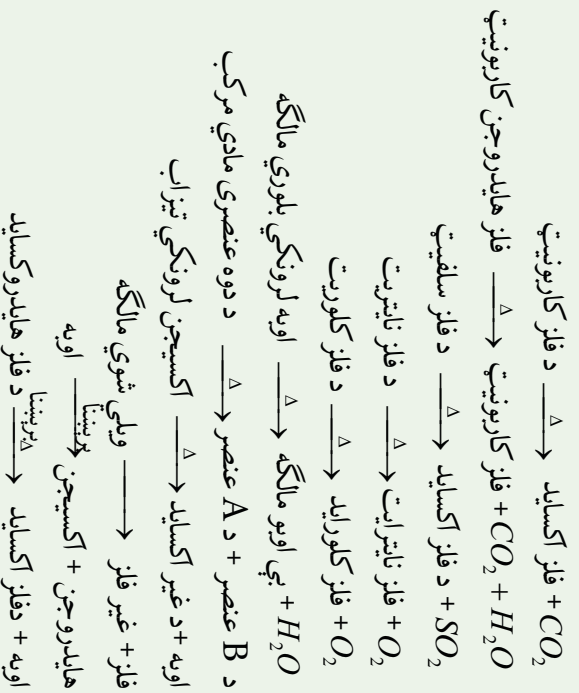 د فلز کاربونیټ —Δ→ فلز اکساید + CO₂
فلز هایدروجن کاربونیټ —Δ→ فلز کاربونیټ + CO₂ + H₂O
د فلز سلفیټ —Δ→ د فلز اکساید + SO₂
د فلز نایتریت —Δ→ فلز نایترایت + O₂
د فلز کلوریت —Δ→ فلز کلوراید + O₂
اوبه لرونکي بلوري مالګه —Δ→ بي اوبو مالګه + H₂O
د دوه عنصری مادي مرکب —Δ→ د A عنصر + د B عنصر
اکسیجن لرونکي تیزاب —Δ→ اوبه + د غیر اکساید
ویلي شوي مالګه → فلز + غیر فلز
اوبه —بریښنا→ هایدروجن + اکسیجن
د فلز هایدروکساید —بریښنا Δ→ اوبه + دفلز اکساید